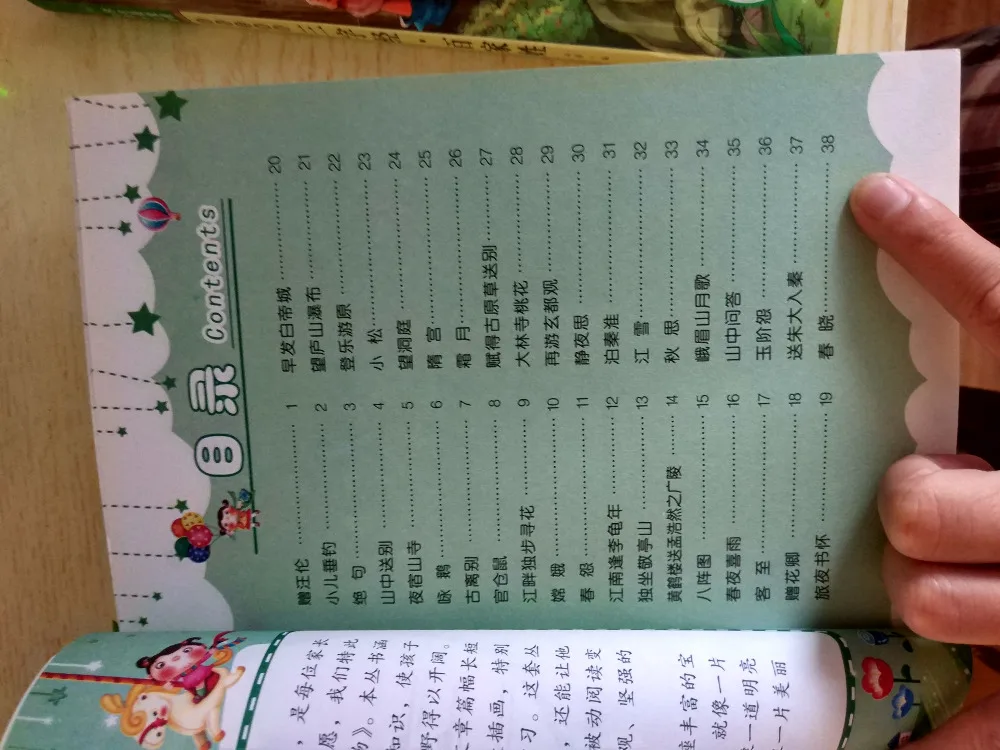 三字经·百家姓
目录 Contents
赠汪伦 1
小儿垂钓 2
绝 句 3
山中送别 4
夜宿山寺 5
咏 鹅 6
古离别 7
官仓鼠 8
江畔独步寻花 9
嫦 娥 10
春 怨 11
江南逢李龟年 12
独坐敬亭山 13
黄鹤楼送孟浩然之广陵 14
八阵图 15
春夜喜雨 16
客 至 17
赠花卿 18
旅夜书怀 19
早发白帝城 20
望庐山瀑布 21
登乐游原 22
小 松 23
望洞庭 24
隋 宫 25
霜 月 26
赋得古原草送别 27
大林寺桃花 28
再游玄都观 29
静夜思 30
泊秦淮 31
江 雪 32
秋 思 33
峨眉山月歌 34
山中问答 35
玉阶怨 36
送朱大入秦 37
春 晓 38
，是每位家长
愿，我们特此
》。本丛书涵
知识，使孩子
野得以开阔。
文章篇幅长短
插画，特别
习。这套丛
，还能让他
被动阅读变
观、坚强的
座丰富的宝
就像一片
一道明亮
一片美丽